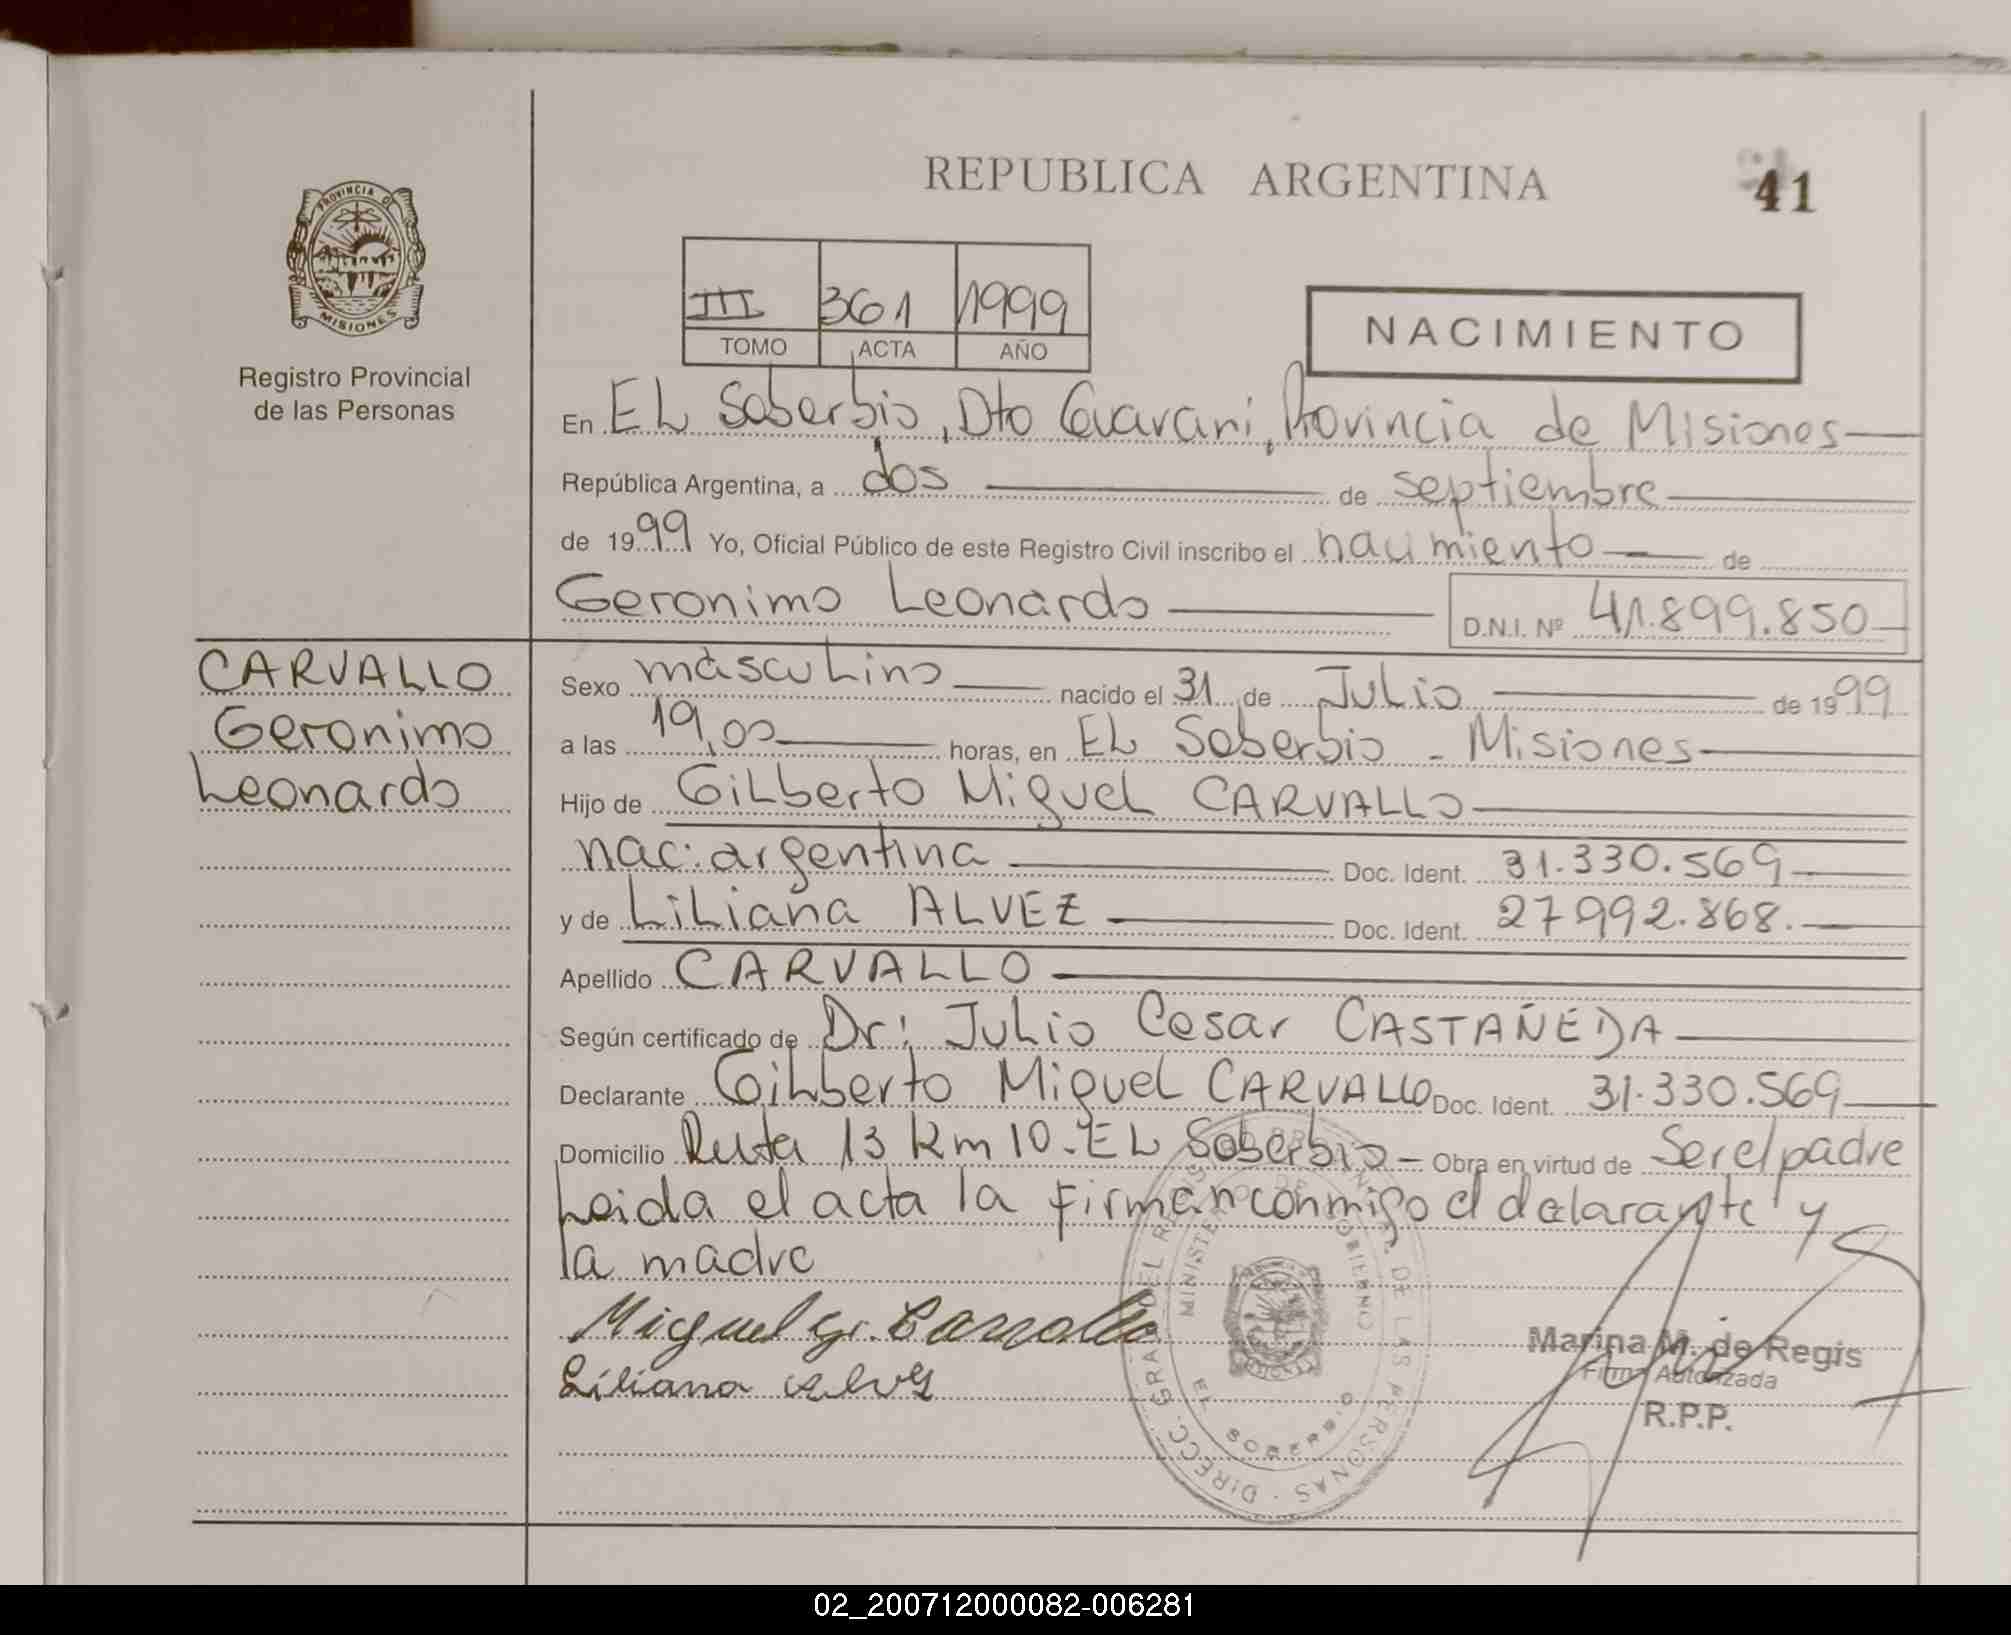 REPUBLICA ARGENTINA
41
PROVINCIA DE
MISIONES
Registro Provincial
de las Personas
III 361 1999
TOMO ACTA AÑO
NACIMIENTO
En EL Soberbio, Dto Guarani, Provincia de Misiones
República Argentina, a dos de septiembre
de 1999 Yo, Oficial Público de este Registro Civil inscribo el nacimiento de
Geronimo Leonardo D.N.I. Nº 41.899.850
CARVALLO
Geronimo
Leonardo
Sexo masculino nacido el 31 de Julio de 1999
a las 19,00 horas, en EL Soberbio - Misiones
Hijo de Gilberto Miguel CARVALLO
nac: argentina Doc. Ident. 31.330.569
y de Liliana ALVEZ Doc. Ident. 27992.868.
Apellido CARVALLO
Según certificado de Dr: Julio Cesar CASTAÑEDA
Declarante Gilberto Miguel CARVALLO Doc. Ident. 31.330.569
Domicilio Ruta 13 km 10-EL Soberbio - Obra en virtud de Ser el padre
Leida el acta la firman conmigo el declarante y
la madre
Miguel G. Carvallo
Liliana Alvez
Marina M. de Regis
Firma Autorizada
R.P.P.
DIRECC. GRAL. DEL REGISTRO PROVINCIAL DE LAS PERSONAS
MINISTERIO DE GOBIERNO
EL SOBERBIO
02_200712000082-006281